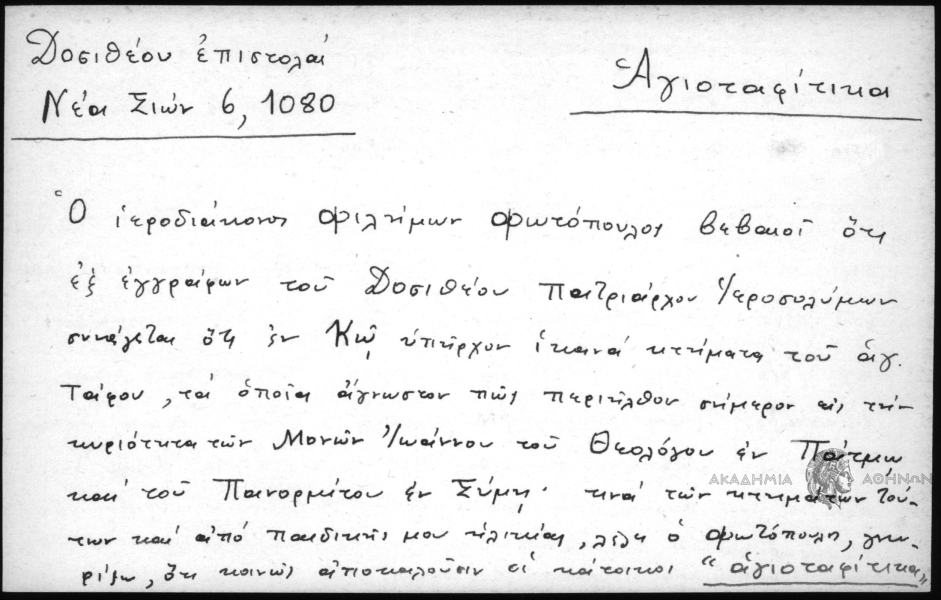 Δοσιθέου ἐπιστολαί
Νέα Σιών 6, 1080
Ἁγιοταφίτικα
Ὁ ἱεροδιάκονος Φιλήμων Φωτόπουλος βεβαιοῖ ὅτι
ἐξ ἐγγράφων τοῦ Δοσιθέου Πατριάρχου Ἱεροσολύμων
συνάγεται ὅτι ἐν Κῷ ὑπῆρχον ἱκανά κτήματα τοῦ ἁγ.
Τάφου, τά ὁποῖα ἄγνωστον πῶς περιῆλθον σήμερον εἰς τήν
κυριότητα τῶν Μονῶν Ἰωάννου τοῦ Θεολόγου ἐν Πάτμῳ
καί τοῦ Πανορμίτου ἐν Σύμῃ· τινά τῶν κτημάτων τού-
των καί ἀπό παιδικῆς μου ἡλικίας, λέγει ὁ Φωτόπουλος, γνω-
ρίζω, ὅτι κοινῶς ἀποκαλοῦσιν οἱ κάτοικοι "ἁγιοταφίτικα"
ΑΚΑΔΗΜΙΑ ΑΘΗΝΩΝ